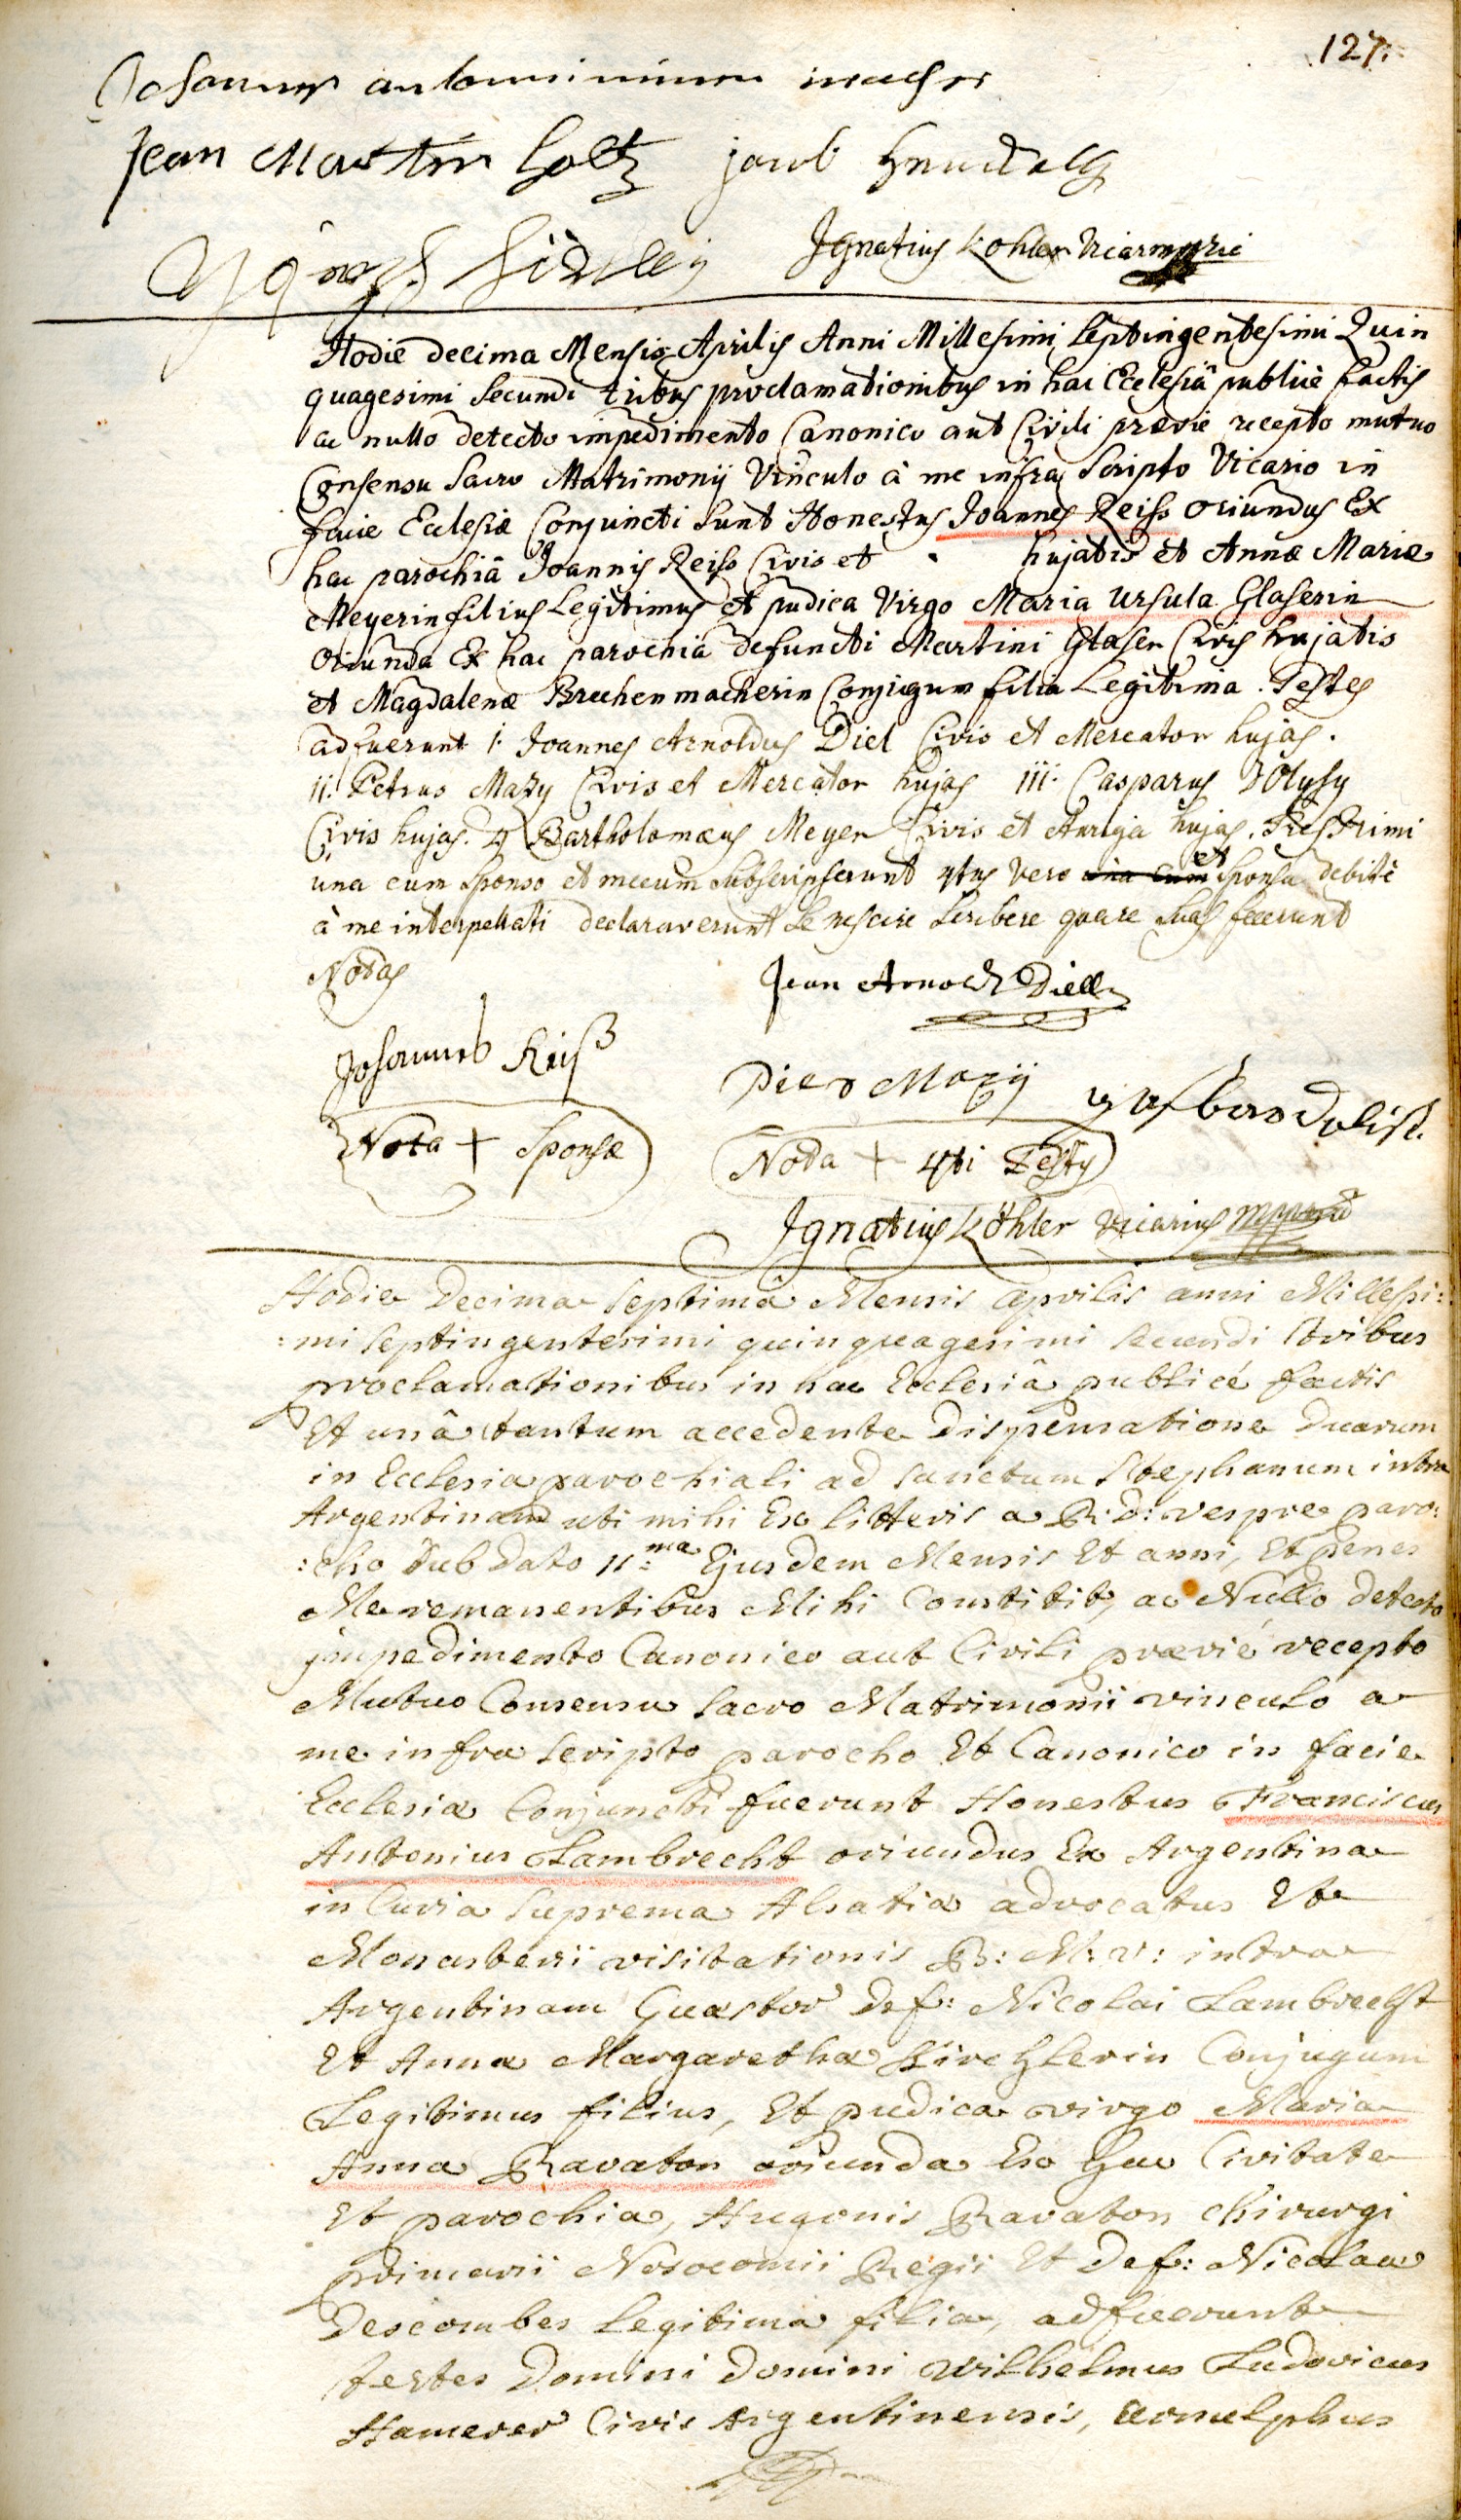 127.
Jean Martin Holtz jacob
Ignatius Kohler Vicarius mppriae
Hodie decima Mensis Aprilis Anni Millesimi Septingentesimi Quin
quagesimi Secundi tribus proclamationibus in hac Ecclesiâ publicè factis
ac nullo detecto impedimento Canonico aut Civili praevie recepto mutuo
Consensu Sacro Matrimonij Vinculo à me infra Scripto Vicario in
facie Ecclesiae Conjuncti Sunt Honestus Joannes Reiss oriundus Ex
hac parochiâ Joannis Reiss Civis et hujatis et Annae Mariae
Meyerin filius Legitimus et pudica Virgo Maria Ursula Glaserin
Oriunda Ex hac parochiâ defuncti Martini Glaser Civis hujatis
et Magdalenae Brechenmacherin Conjugum filia Legitima. Testes
adfuerunt i. Joannes Arnoldus Diel Civis et Mercator hujas.
ii. Petrus Mazy Civis et Mercator hujas iii. Casparus Dolysy
Civis hujas. 4 Bartholomaeus Meyer Civis et Auriga hujas. Tres Primi
una cum Sponso et mecum Subscripserunt 4tus vero una cum et Sponsa debitè
à me interpellati declaraverunt Se nescire Scribere quare Suas fecerunt
Notas
Jean Arnold Diell
Johannes Reiß
Pier Mazij
Nota + Sponsae
Nota + 4ti Testis
Ignatius Köhler Vicarius mppria
Hodie Decima Septimâ Mensis Aprilis anni Millesi:
:mi Septingentesimi quinquagesimi Secundi tribus
proclamationibus in hac Ecclesiâ publicé factis
Et unâ tantum accedente Dispensatione Duarum
in Ecclesia parochiali ad Sanctum Stephanum intra
Argentinam uti mihi Ex litteris a R: D: Vespre paro:
:cho Sub Dato 11:ma Ejusdem Mensis Et anni, Et penes
Me remanentibus Mihi Constitit, ac Nullo detecto
jmpedimento Canonico aut Civili praevié recepto
Mutuo Consensu Sacro Matrimonii vinculo a
me infra Scripto parocho Et Canonico in facie
Ecclesiae Conjuncti fuerunt Honestus Franciscus
Antonius Lambrecht oriundus Ex Argentina
in Curia Suprema Alsatiae advocatus Et
Monasterii visitationis B: M: V: intra
Argentinam Quaestor Def: Nicolai Lambrecht
Et Annae Margarethae Kirchlerin Conjugum
Legitimus filius, Et pudica virgo Maria
Anna Ravaton oriunda Ex hac Civitate
Et parochia, Hugonis Ravaton Chirurgi
primarii Nosocomii Regii Et Def: Nicolae
Descombes Legitima filia, adfuerunt
testes Domini Domini Wilhelmus Ludovicus
Hamerer Civis Argentinensis, Arnulphus